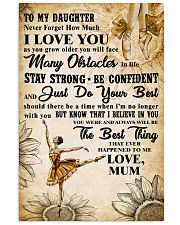 TO MY DAUGHTER
Never Forget How Much
I LOVE YOU
as you grow older you will face
Many Obstacles in life
STAY STRONG • BE CONFIDENT
AND Just Do Your Best
should there be a time when i'm no longer
with you BUT KNOW THAT I BELIEVE IN YOU
YOU WERE AND ALWAYS WILL BE
The Best Thing
THAT EVER
HAPPENED TO ME
LOVE,
MUM